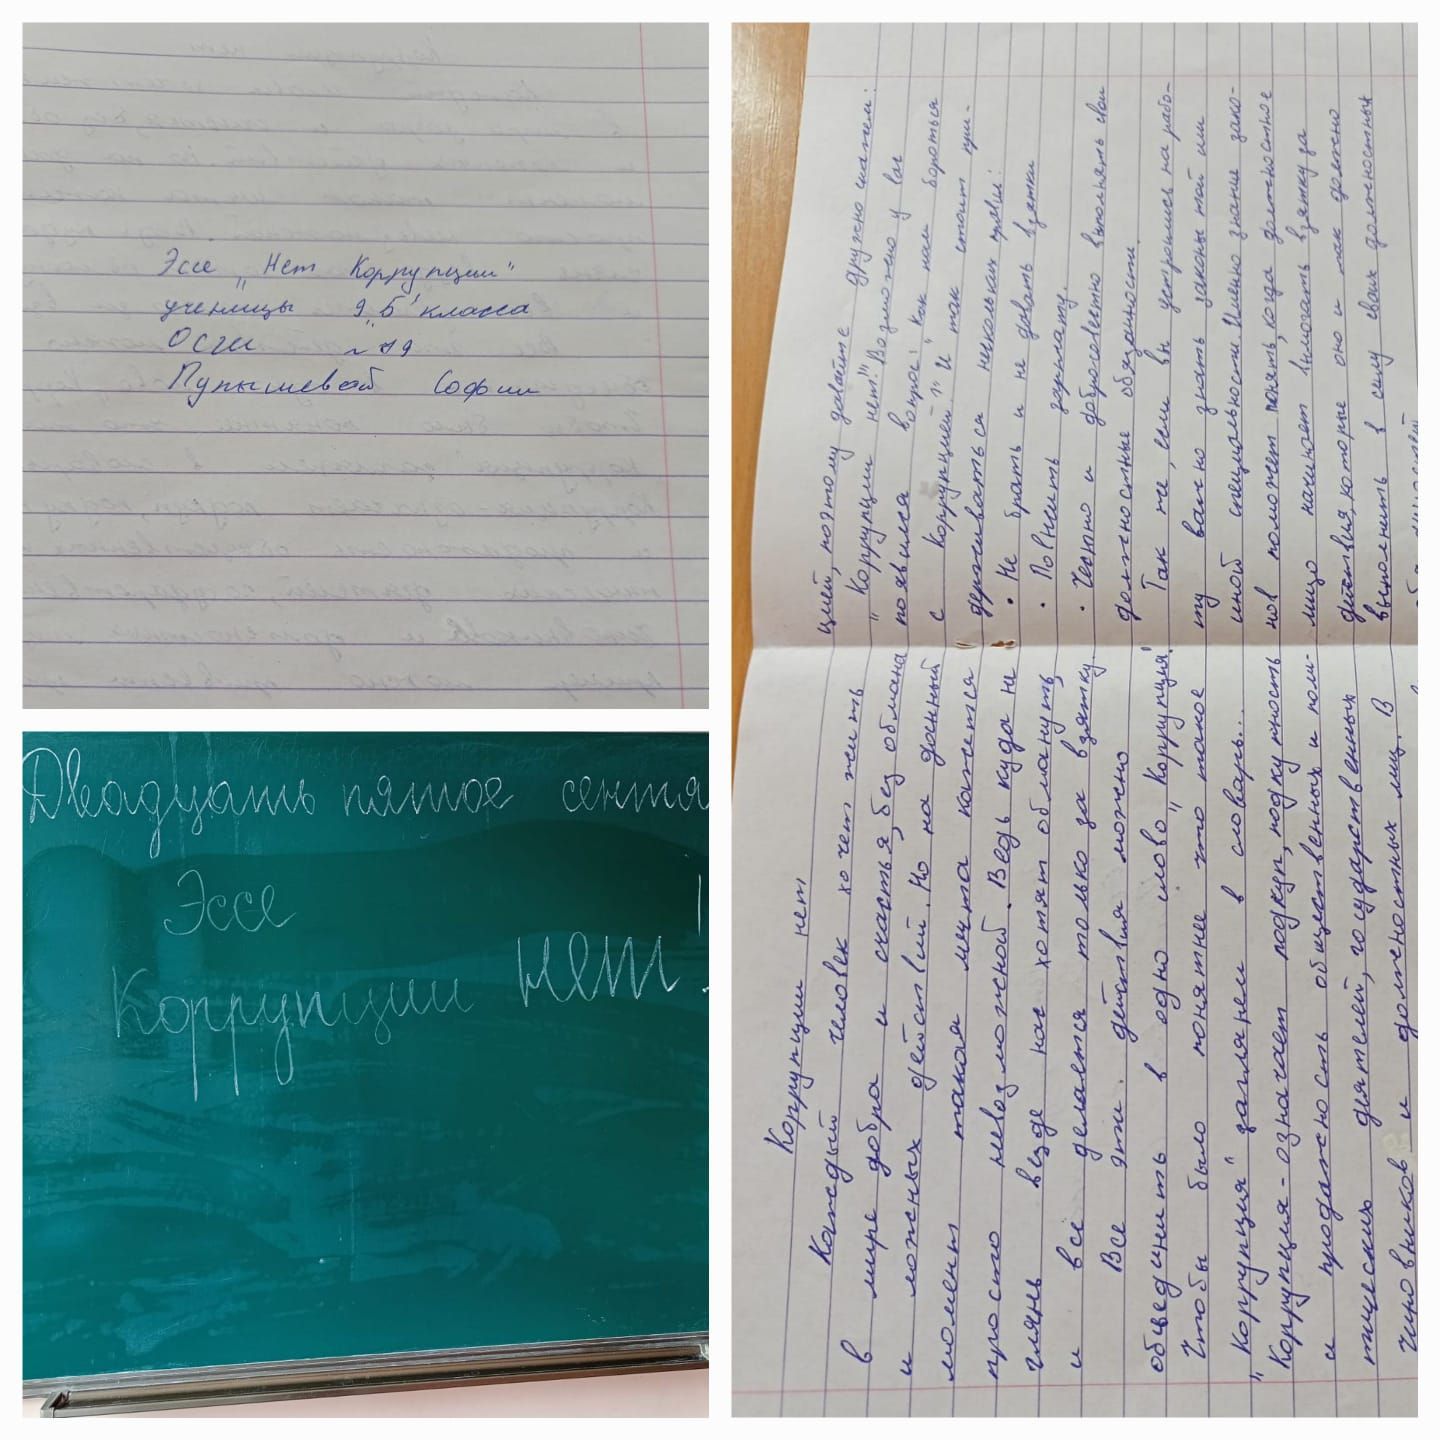 Эссе „Нет Коррупции"
ученицы 9„Б" класса
ОСГИ №19
Пупышевой Софии
Двадцать пятое сентя
Эссе
Коррупции нет!
Коррупции нет
Каждый человек хочет жить
в мире добра и счастья, без обмана
и ложных действий. Но на данный
момент такая мечта кажется
просто невозможной. Ведь куда не
глянь везде нас хотят обмануть,
и все делается только за взятку.
Все эти действия можно
обьединить в одно слово „Коррупция".
Чтобы было понятнее что такое
„Коррупция" заглянем в словарь...
Коррупция - означает подкуп, подкупность
и продажность общественных и поли-
тических деятелей, государственных
чиновников и должностных лиц. В
цией, поэтому давайте дружно скажем:
„Коррупции нет!" Возможно у вас
появился вопрос: „Как нам бороться
с коррупцией?" И так стоит при-
держиваться нескольких правил:
• Не брать и не давать взятки
• Повысить зарплату.
• Честно и добросовестно выполнять свои
должностные обязанности.
Так же, если вы устроились на рабо-
ту важно знать законы той или
иной специальности. Именно знание зако-
нов поможет понять, когда должностное
лицо начинает вымогать взятку за
действия, которые оно и так должно
выполнить в силу своих должностных